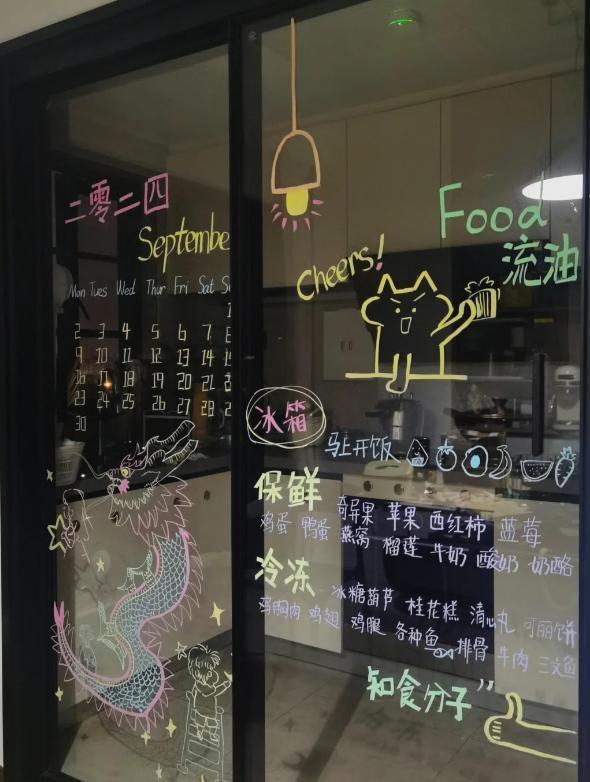 二零二四
Septembe
Mon Tues Wed Thur Fri Sat Su
1
2 3 4 5 6 7 8
9 10 11 12 13 14 15
16 17 18 19 20 21 22
23 24 25 26 27 28 2
30
Cheers!
Food
流油
冰箱
马上开饭
保鲜
奇异果 苹果 西红柿 蓝莓
鸡蛋 鸭蛋 燕窝 榴莲 牛奶 酸奶 奶酪
冷冻
冰糖葫芦 桂花糕 清心丸 可丽饼
鸡胸肉 鸡翅 鸡腿 各种鱼 排骨 牛肉 三文鱼
知食分子"